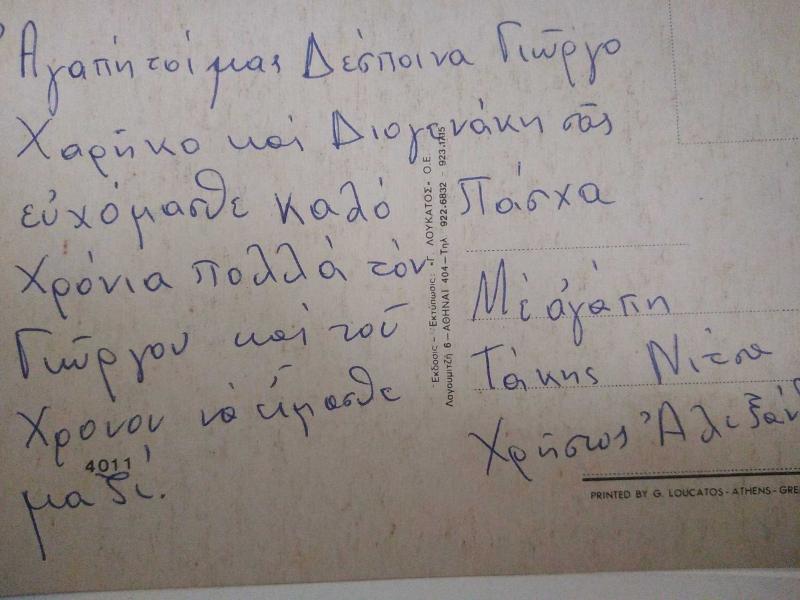 Ἀγαπητοί μας Δέσποινα Γιῶργο
Χαρῆκο καί Διογενάκη σᾶς
εὐχόμασθε καλό Πάσχα
Χρόνια πολλά τόν
Γιῶργου καί τοῦ
Χρονου νά εἴμασθε
μαζί.
Μέ ἀγάπη
Τάκης Νίτσα
Χρῆστος Ἀλεξάν
4011
Ἔκδοσις – Ἐκτύπωσις: «Γ. ΛΟΥΚΑΤΟΣ» Ο.Ε.
Λαγουμιτζῆ 6 – ΑΘΗΝΑΙ 404 – Τηλ. 922.6832 - 923.1715
PRINTED BY G. LOUCATOS - ATHENS - GRE